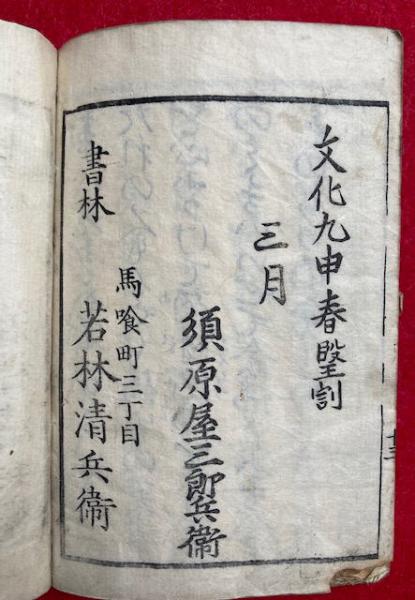 文化九申春竪割
三月
須原屋三郎兵衞
馬喰町三丁目
書林
若林清兵衞
十三